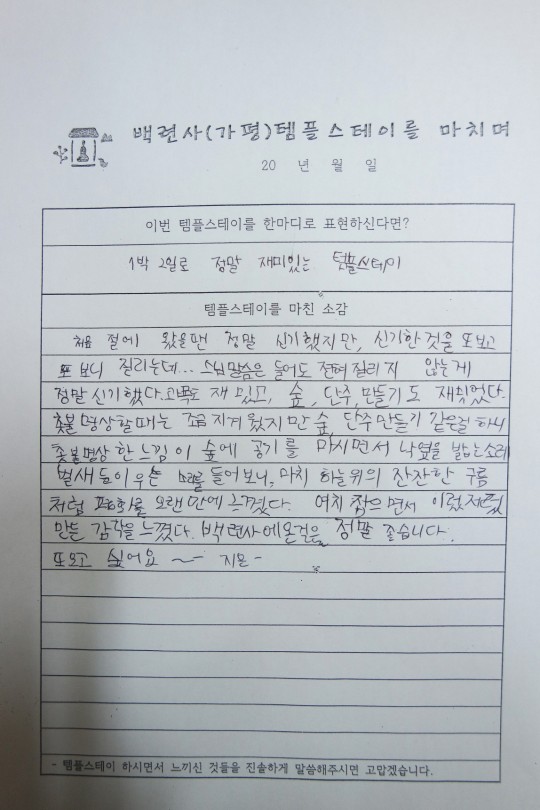 백련사(가평)템플스테이를 마치며
20 년 월 일
이번 템플스테이를 한마디로 표현하신다면?
1박 2일로 정말 재미있는 템플스테이
템플스테이를 마친 소감
처음 절에 왔을땐 정말 신기했지만, 신기한것을 또보고
또 보니 질리는데... 스님말씀은 들어도 전혀질리지 않는게
정말신기했다. 재 있고, 숲, 단주,만들기도 재밌었다.
촛불명상할때는 조금 지겨웠지만 숲, 단주만들기 같은걸 하니
촛불명상 한느낌이 숲에 공기를 마시면서 낙엽을 밟는소리
벌새들이 우는 소리를 들어보니, 마치 하늘위의 잔잔한 구름
처럼 평화를 오랜만에 느꼈다. 잡으면서
만든 감각을 느꼈다. 백련사에온걸을 정말 좋습니다.
또오고 싶어요 ~ - 지은 -
- 템플스테이 하시면서 느끼신 것들을 진솔하게 말씀해주시면 고맙겠습니다.